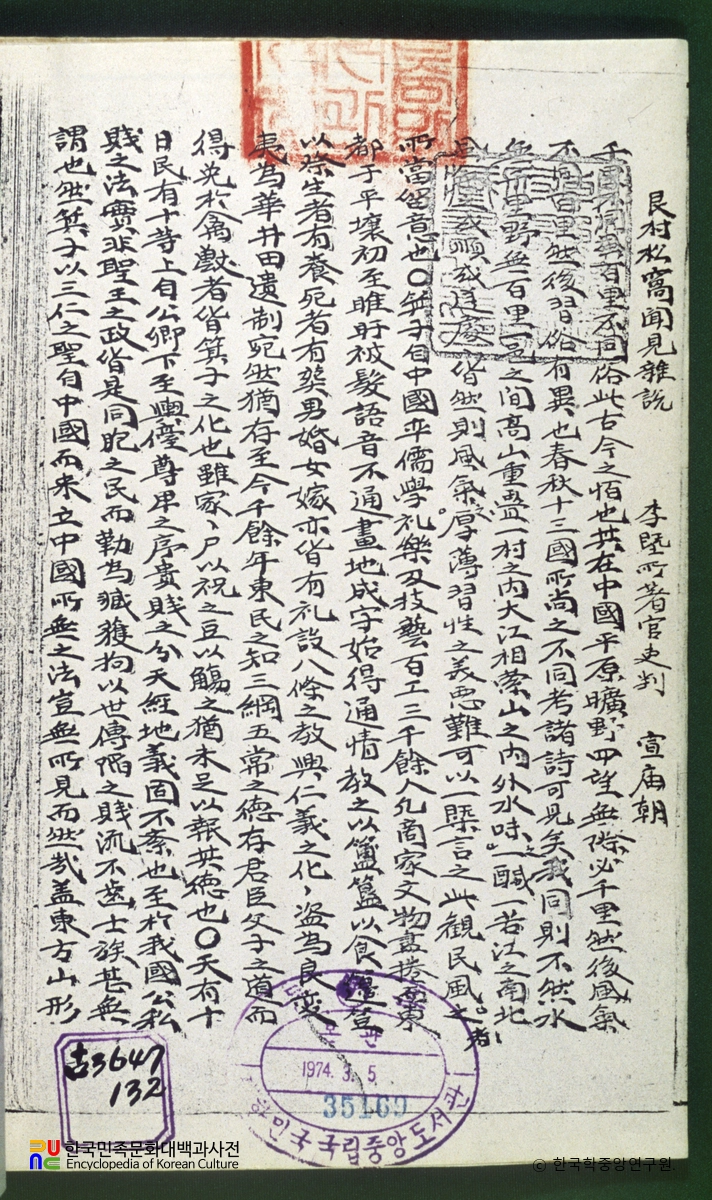 艮村松窩聞見雜說 李墍所著官吏判 宣庙朝
千里不同風百里不同俗此古今之恒也其在中國平原曠野四望無際必千里然後風氣
不同百里然後習俗有異也春秋十三國所尚之不同考諸詩可見矣我國則不然水
無里野無百里一邑之間高山重疊一村之內大江相縈山之內外水味一醎一若江之南北
風皆然則風氣厚薄習性之義惡難可以一槩言之此觀民風之者
所當留意也〇箕子自中國率儒學礼樂及技藝百工三千餘人凡商家文物盡捲而東
都于平壤初至睢盱被髮語音不通畫地成字始得通情教之以簠簋以食
以祭生者有養死者有葬男婚女嫁亦皆有礼設八條之教興仁義之化盜為良變
夷為華井田遺制宛然猶存至今千餘年東民之知三綱五常之德存君臣父子之道而
得免於禽獸者皆箕子之化也雖家家戶以祝之豆以觴之猶未足以報其德也〇天有十
日民有十等上自公卿下至輿儓尊卑之序貴賤之分天經地義固不紊也至於我國公私
賤之法實非聖王之政皆是同胞之民而勒為臧獲拘以世傳陷之賤流不齒士族甚無
謂也然箕子以三仁之聖自中國而來立中國所無之法豈無所見而然哉盖東方山形
古3647
132
1974. 3. 5
35169
국립중앙도서관
한국민족문화대백과사전
Encyclopedia of Korean Culture
© 한국학중앙연구원